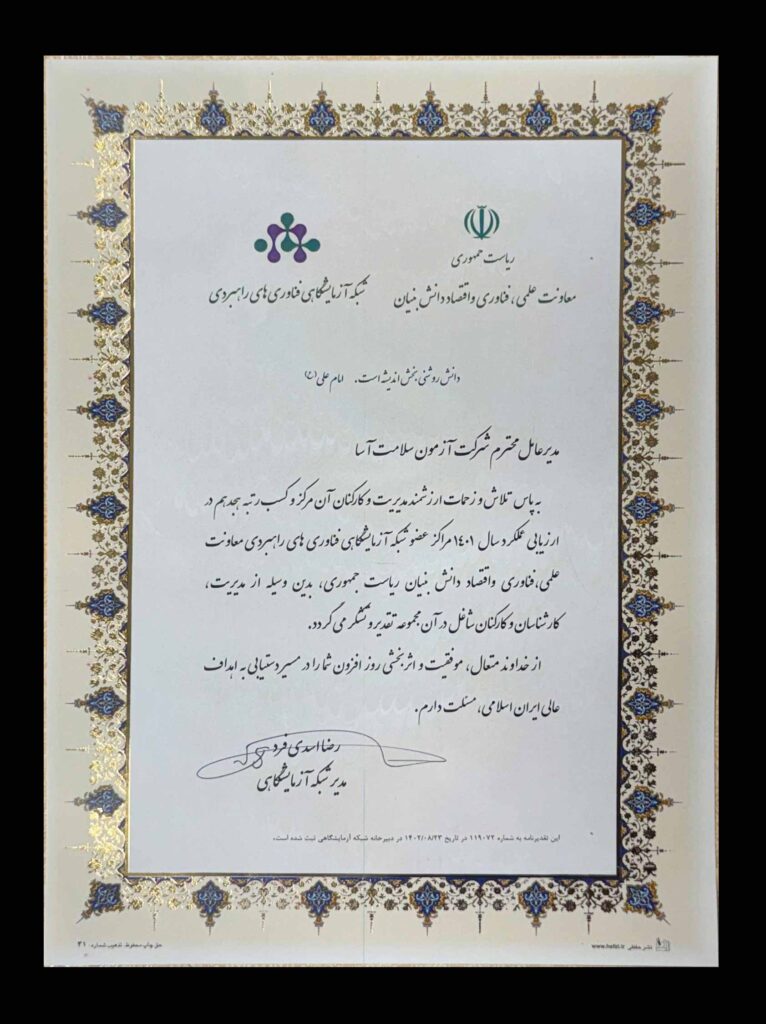 ریاست جمهوری
معاونت علمی، فناوری و اقتصاد دانش بنیان
شبکه آزمایشگاهی فناوری های راهبردی
دانش روشنی بخش اندیشه است. امام علی (ع)
مدیرعامل محترم شرکت آزمون سلامت آسا
به پاس تلاش و زحمات ارزشمند مدیریت و کارکنان آن مرکز و کسب رتبه هجدهم در
ارزیابی عملکرد سال ۱۴۰۱ مراکز عضو شبکه آزمایشگاهی فناوری های راهبردی معاونت
علمی، فناوری و اقتصاد دانش بنیان ریاست جمهوری، بدین وسیله از مدیریت،
کارشناسان و کارکنان شاغل در آن مجموعه تقدیر و تشکر می گردد.
از خداوند متعال، موفقیت و اثربخشی روز افزون شما را در مسیر دستیابی به اهداف
عالی ایران اسلامی، مسئلت دارم.
رضا اسدی فرد
مدیر شبکه آزمایشگاهی
این تقدیرنامه به شماره ۱۱۹۰۷۲ در تاریخ ۱۴۰۲/۰۸/۲۳ در دبیرخانه شبکه آزمایشگاهی ثبت شده است.
نشر حافظی www.hafizi.ir
حق چاپ محفوظ. تذهیب شماره: ۳۱